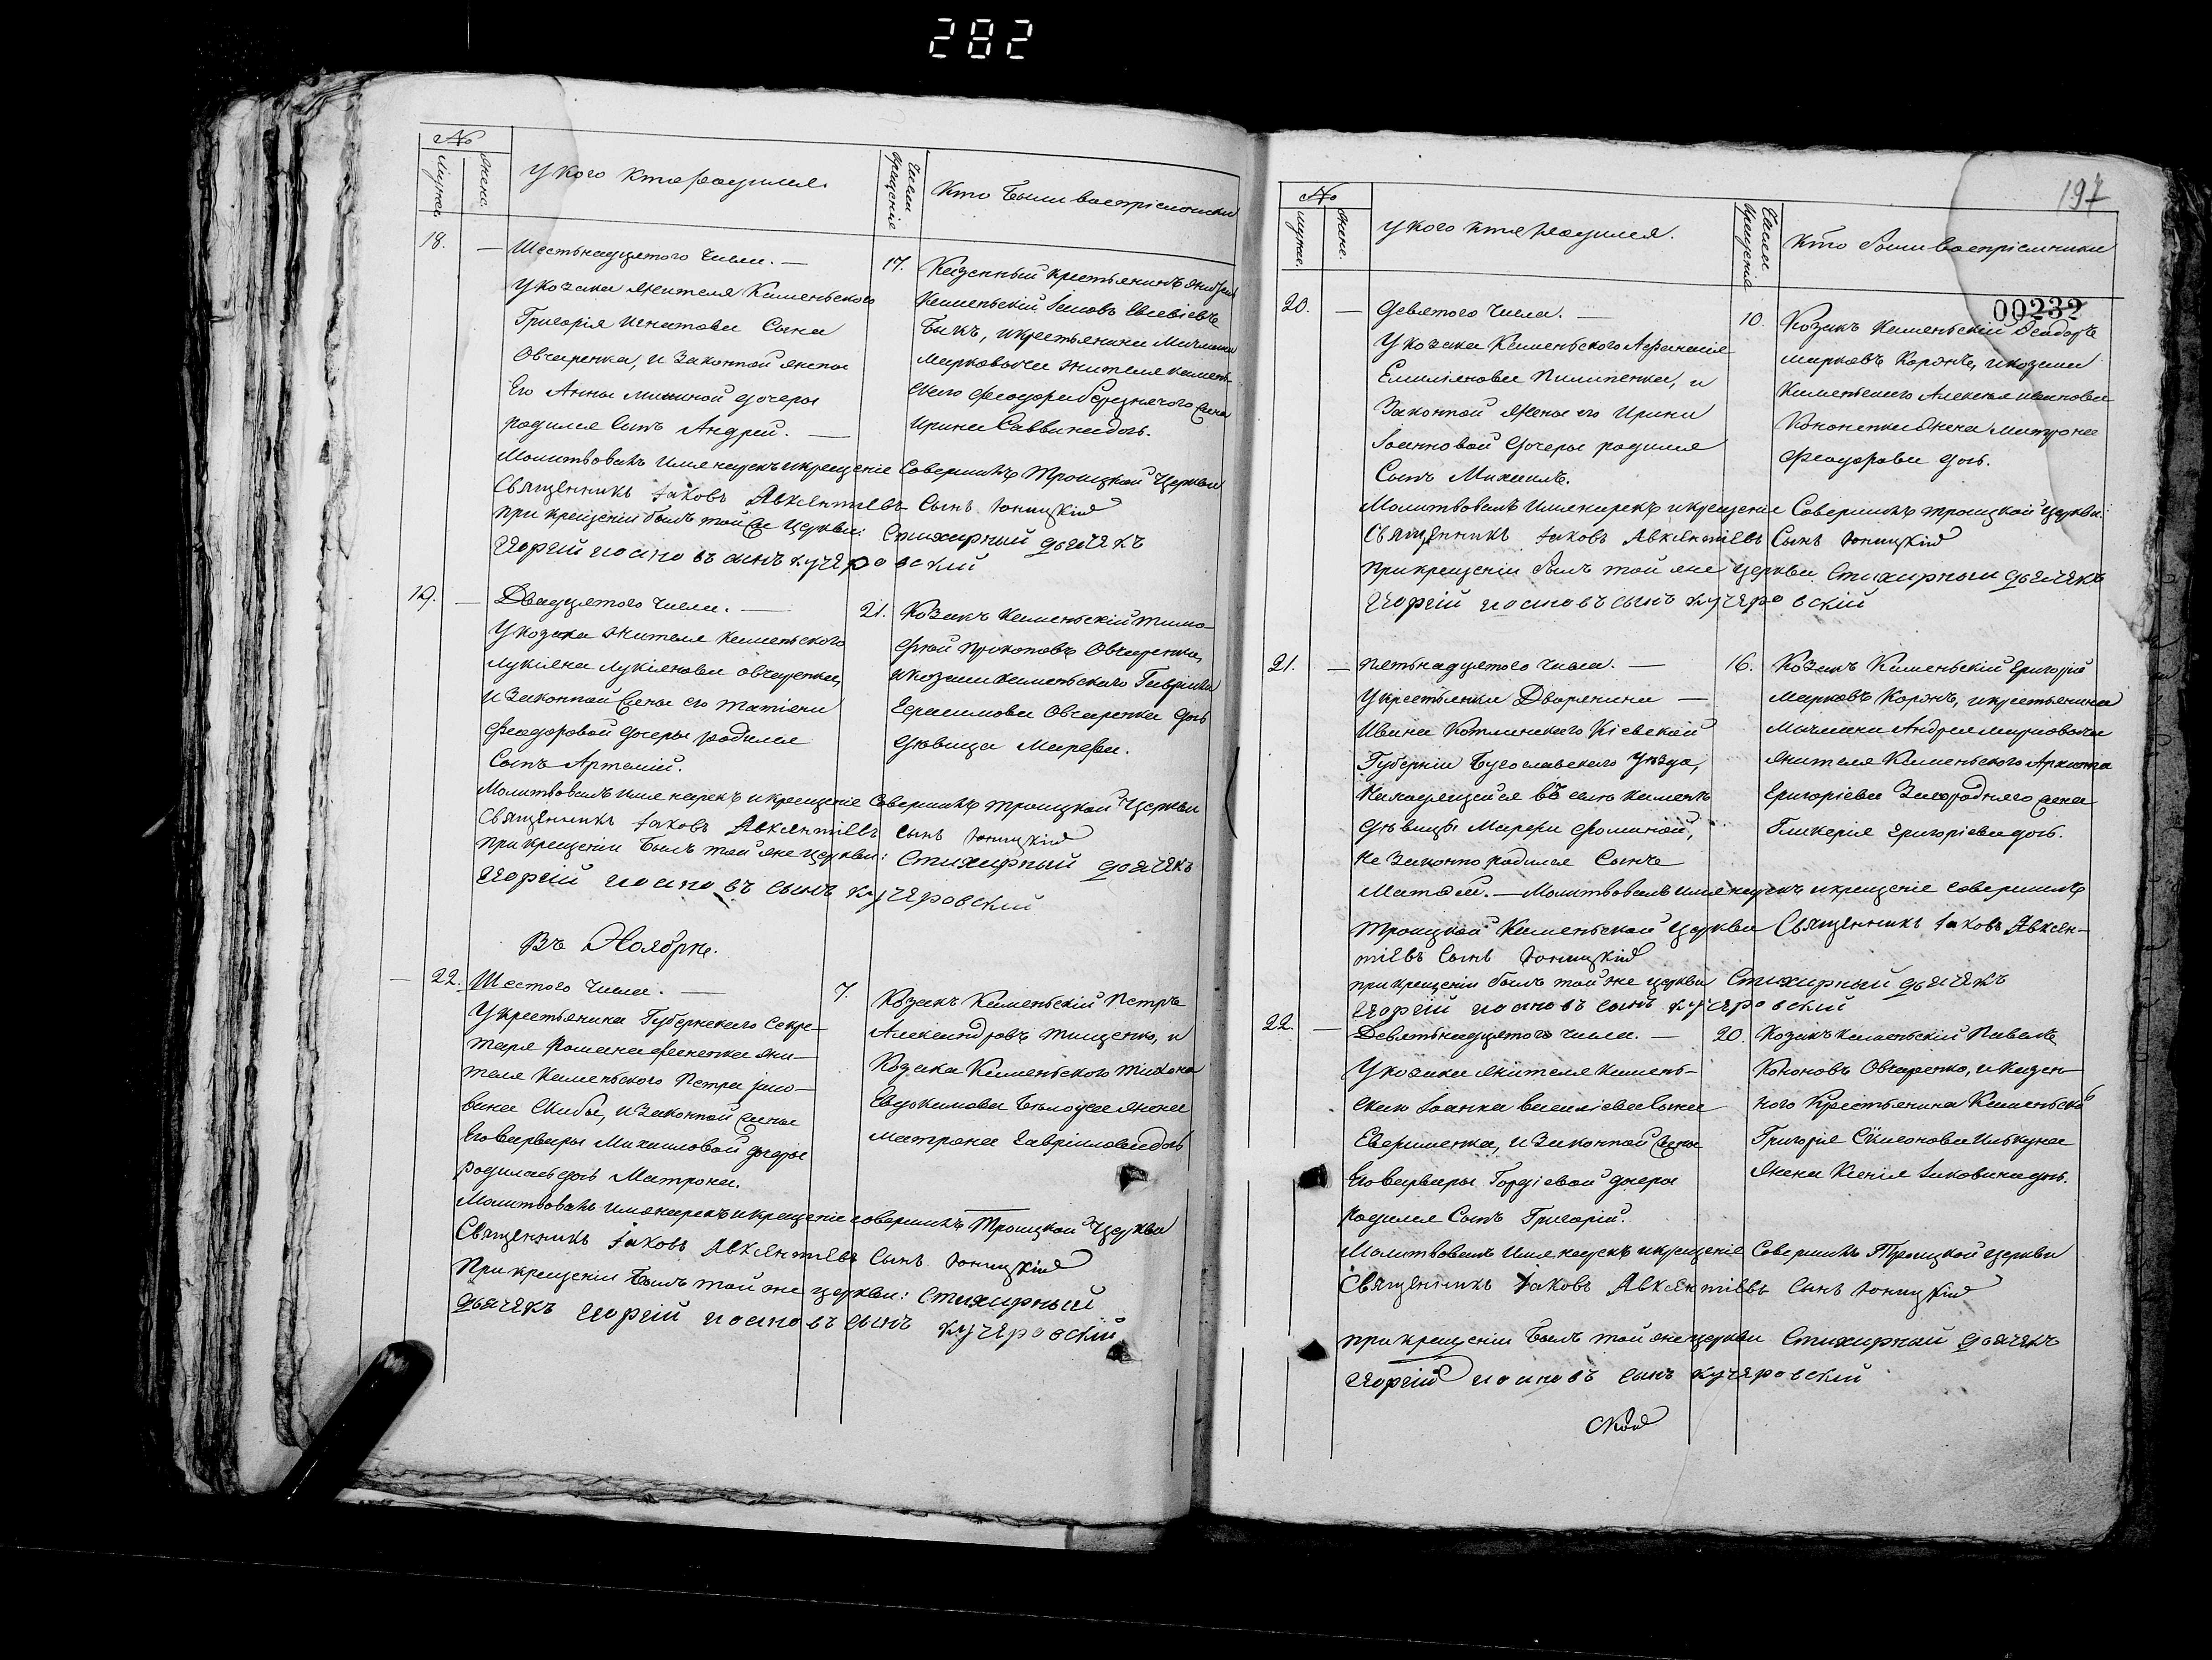 282
№
Мужеск.
Женск.
У кого кто родился.
Число крещенія
Кто были воспріемники
18. — Шестьнадцятого числа. —
У козака жителя Каменьского
Григорія Игнатова Сына
Овчаренка, и Законной жены
Его Анны дочеры
родился Сынъ Андрей. —
17. Казенный крестьянинъ
Каменьскій Іаковъ
Быкъ, и крестьянина Мичмана
Марковыча жителя Камень-
ского Феодора жена
Ирина Саввина дочь.
Молитвовалъ имя нарекъ и крещеніе Совершилъ Троицкой Церкви
Священникъ Іаковъ Авксентіевъ Сынъ Юницкій
При крещеніи былъ той же Церкви: Стихирный дьячекъ
Георгій Иоановъ сынъ Кучеровскій
19. — Двадцятого числа. —
У козака жителя Каменьского
Лукіяна Лукіянова Овчаренка,
и Законной жены его Татіяны
Феодоровой дочеры родился
Сынъ Артемій.
21. Козакъ Каменьскій Тимо-
фей Прокоповъ Овчаренко,
и козака Каменьского Гавріила
Герасимова Овчаренка дочь
дѣвица Марфа.
Молитвовалъ имя нарекъ и крещеніе Совершилъ Троицкой Церкви
Священникъ Іаковъ Авксентіевъ Сынъ Юницкій
При крещеніи былъ той же церкви: Стихирный дьячекъ
Георгій Иоановъ сынъ Кучеровскій
Въ Ноябрѣ.
— 22. Шестого числа. —
У крестьянина Губернского Секре-
таря Романа жи-
теля Каменьского Петра
Скибы, и Законной жены
Его Варвары Михаиловой дочеры
родилась дочь Матрона.
7. Козакъ Каменьскій Петръ
Александровъ Тищенко, и
Козака Каменьского Тихона
Евдокимова Бѣлоуса жена
Матрона Гавріилова дочь
Молитвовалъ имя нарекъ и крещеніе совершилъ Троицкой Церкви
Священникъ Іаковъ Авксентіевъ Сынъ Юницкій
При крещеніи былъ той же церкви: Стихирный
дьячекъ Георгій Иоановъ сынъ Кучеровскій
197
№
Мужес.
Женс.
У кого кто родился.
Число крещенія
Кто были воспріемники
00232
20. — Девятого числа. —
У козака Каменьского Афанасія
Емиліянова Пилипенка, и
Законной жены его Ирины
Іоанновой дочеры родился
Сынъ Михаилъ.
10. Козакъ Каменьскій Феодоръ
Марковъ Коронъ, и козака
Каменьского Алексѣя Иванова
Кононенка жена Матрона
Феодорова дочь.
Молитвовалъ имя нарекъ и крещеніе Совершилъ Троицкой Церкви:
Священникъ Іаковъ Авксентіевъ Сынъ Юницкій
При крещеніи былъ той же церкви Стихирный дьячекъ
Георгій Иоановъ сынъ Кучеровскій
21. — Пятьнадцятого числа. —
У крестьянки Дворянина —
Ивана Котлинского Кіевской
Губерніи Богославского Уѣзда,
Находящейся въ селѣ Каменѣ
дѣвицы Марфы Фоминой,
Не Законно родился Сынъ
Матѳей. — Молитвовалъ имя нарекъ и крещеніе совершилъ
16. Козакъ Каменьскій Григорій
Марковъ Коронъ, и крестьянина
Мичмана Андрея Марковыча
жителя Каменьского Архипа
Григоріева Загороднего жена
Гликерія Григоріева дочь.
Троицкой Каменьской церкви Священникъ Іаковъ Авксен-
тіевъ Сынъ Юницкій
При крещеніи былъ той же церкви Стихирный дьячекъ
Георгій Иоановъ сынъ Кучеровскій
22. — Девятьнадцятого числа. —
У козака жителя Камень-
ского Іоанна Василіева Сына
Евершенка, и Законной жены
Его Варвары Гордіевой дочеры
родился Сынъ Григорій.
20. Козакъ Каменьскій Павелъ
Кононовъ Овчаренко, и Казен-
ного Крестьянина Каменьского
Григорія Сѵмеонова
жена Ксенія Іаковлева дочь.
Молитвовалъ имя нарекъ и крещеніе Совершилъ Троицкой церкви
Священникъ Іаковъ Авксентіевъ Сынъ Юницкій
При крещеніи былъ той же церкви Стихирный дьячекъ
Георгій Иоановъ сынъ Кучеровскій